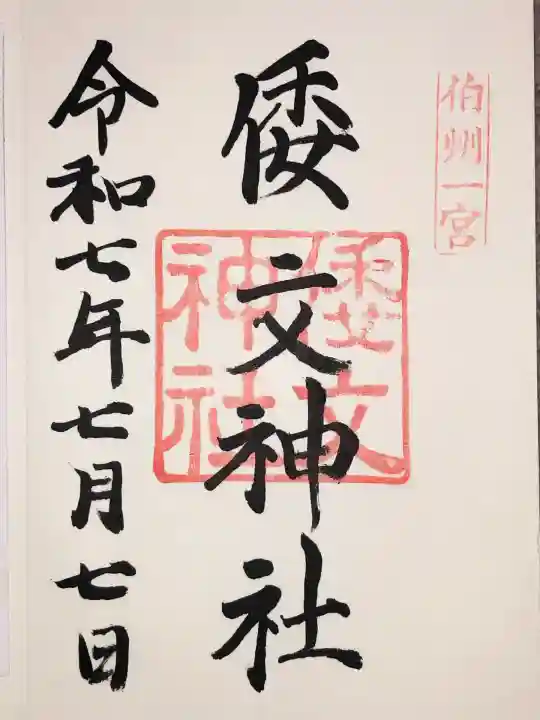 伯州一宮
倭文神社
倭文
神社
令和七年七月七日